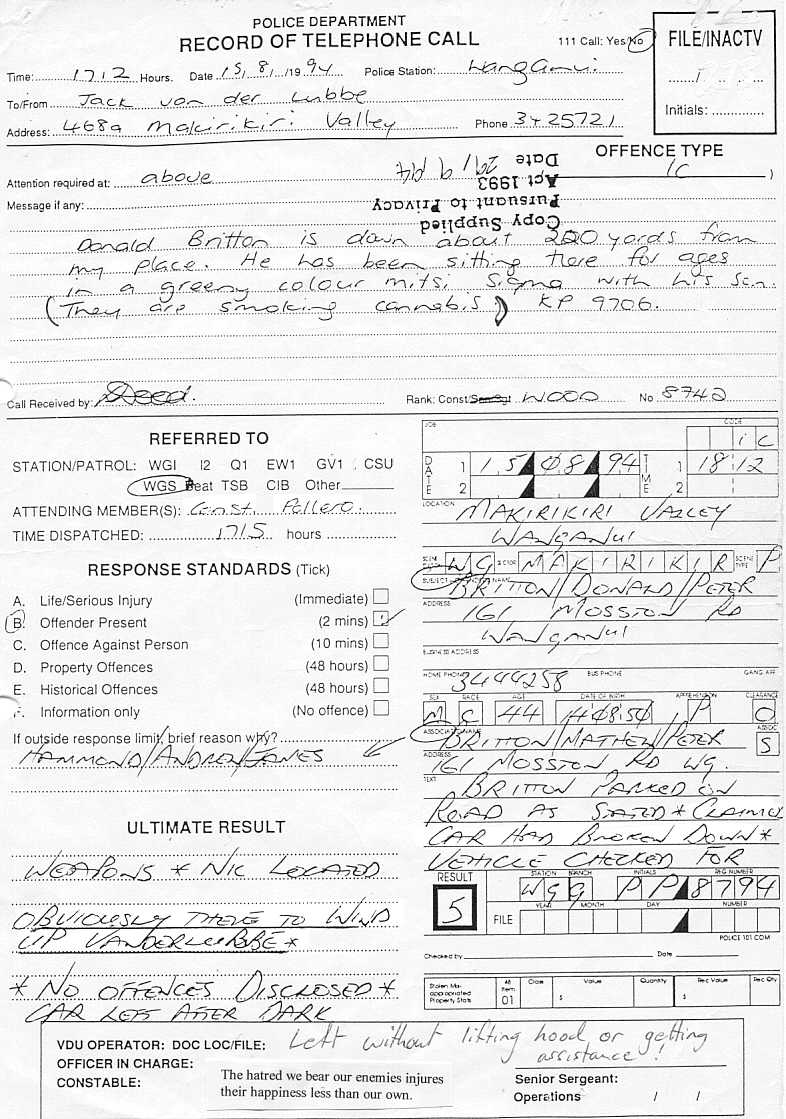 POLICE DEPARTMENT
RECORD OF TELEPHONE CALL
111 Call: Yes/No
FILE/INACTV
Time: 1712 Hours. Date 15/8/1994 Police Station: Wanganui
To/From Jack van der Lubbe
Address: 468a Makirikiri Valley Phone 3425721
Initials:
OFFENCE TYPE
1C
Attention required at: above
Message if any:
Copy Supplied
Pursuant to Privacy
Act 1993
Date
Donald Britton is down about 200 yards from
my place. He has been sitting there for ages
in a greeny colour mitsi Sigma with his son.
(They are smoking cannabis) KP 9706.
Call Received by: Rank: Const/SenSgt WOOD No 8742
REFERRED TO
STATION/PATROL: WGI I2 Q1 EW1 GV1 CSU
WGS Beat TSB CIB Other
ATTENDING MEMBER(S): Const.
TIME DISPATCHED: 1715 hours
RESPONSE STANDARDS (Tick)
A. Life/Serious Injury (Immediate)
B. Offender Present (2 mins)
C. Offence Against Person (10 mins)
D. Property Offences (48 hours)
E. Historical Offences (48 hours)
F. Information only (No offence)
If outside response limit, brief reason why?
HAMMOND/ANDREW/JAMES
ULTIMATE RESULT
WEAPONS * NIL LOCATED
OBVIOUSLY THERE TO WIND
UP VANDERLUBBE *
* NO OFFENCES DISCLOSED *
CAR LEFT AFTER DARK
JOB CODE
1C
DATE 1 15 08 94 TIME 1 1812
2 2
LOCATION MAKIRIKIRI VALLEY
WANGANUI
WG SECTOR MAKIRIKIR SCENE TYPE P
BRITTON/DONALD/PETER
ADDRESS 161 MOSSTON RD
WANGANUI
BUSINESS ADDRESS
HOME PHONE 3444258 BUS PHONE GANG AFF
SEX RACE AGE DATE OF BIRTH APPREHENSION CLEARANCE
M C 44 140850 P O
ASSOCIATE/NAME BRITTON/MATHEW/PETER ASSOC S
ADDRESS 161 MOSSTON RD WG.
TEXT BRITTON PARKED ON
ROAD AS STATED * CLAIMED
CAR HAD BROKEN DOWN *
VEHICLE CHECKED FOR
RESULT STATION BRANCH INITIALS REG NUMBER
5 WG G PP 8794
FILE YEAR MONTH DAY NUMBER
POLICE 101 COM
Checked by Date
Stolen Mis-appropriated Property Stats All Item 01 Class Value $ Quantity Rec Value $ Rec Qty
VDU OPERATOR: DOC LOC/FILE: Left without lifting hood or getting
assistance!
OFFICER IN CHARGE:
CONSTABLE:
The hatred we bear our enemies injures
their happiness less than our own.
Senior Sergeant:
Operations / /